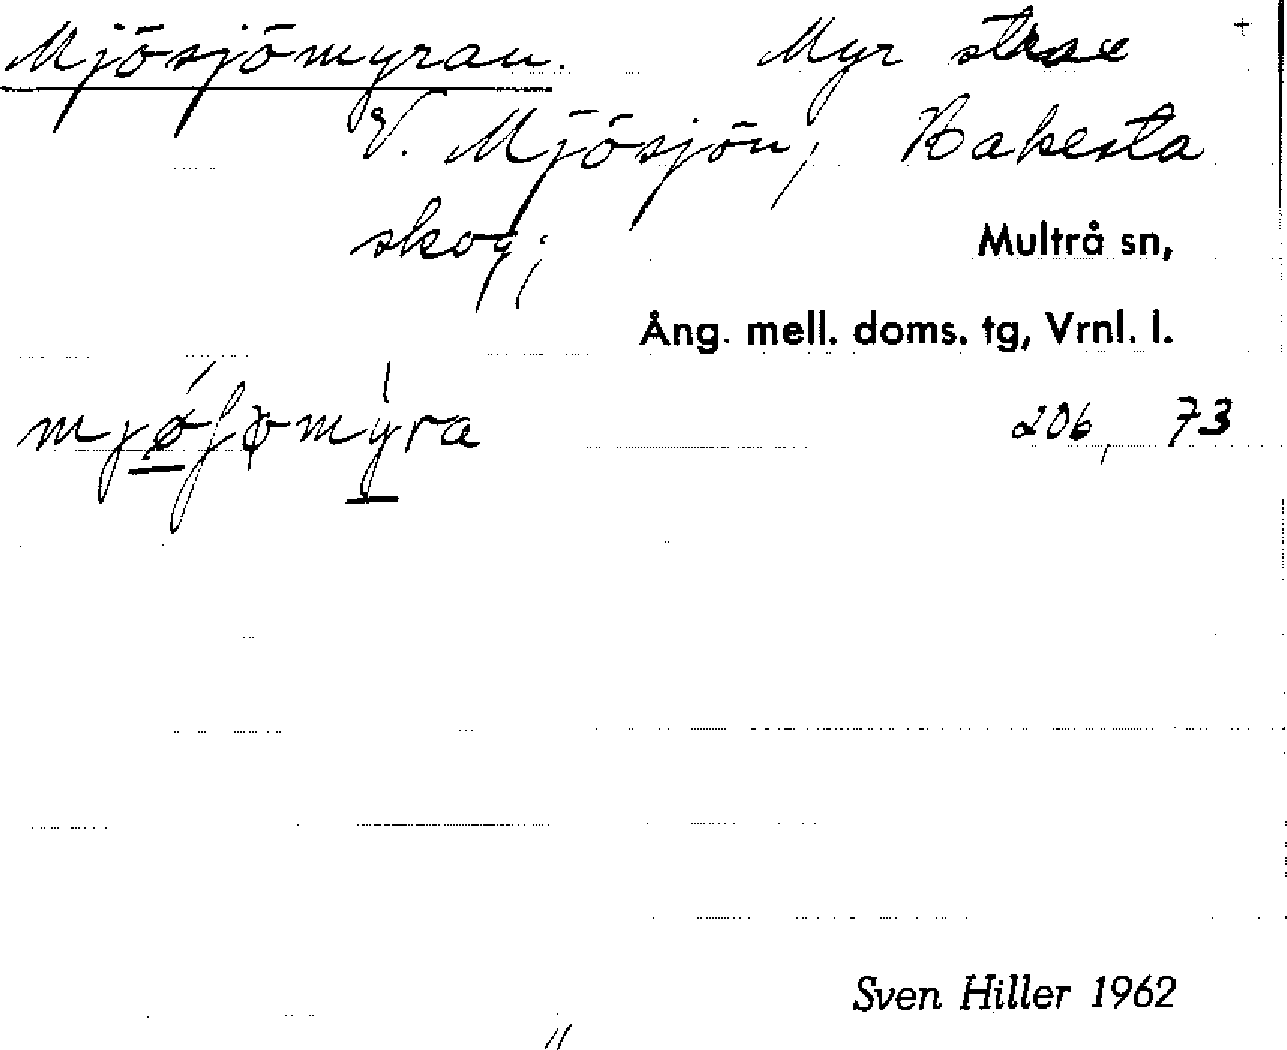 Mjösjömyran. Myr strax +
V. Mjösjön, Bakesta
skog;
Multrå sn,
Ång. mell. doms. tg, Vrnl. l.
206, 73
Sven Hiller 1962